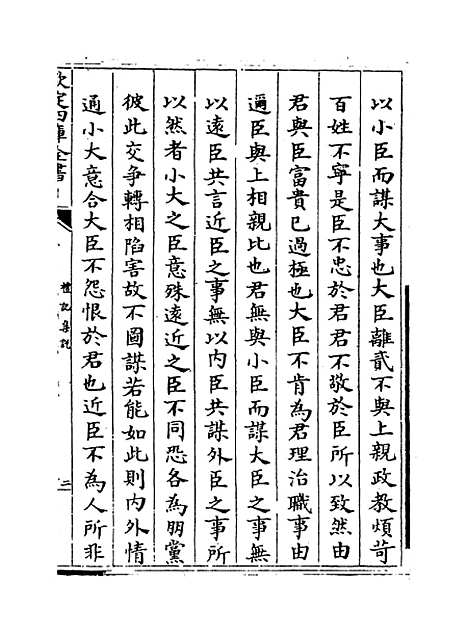 以小臣而謀大事也大臣離貳不與上親政教煩苛
百姓不寧是臣不忠於君君不敬於臣所以致然由
君與臣富貴已過極也大臣不肯為君理治職事由
邇臣與上相親比也君無與小臣而謀大臣之事無
以遠臣共言近臣之事無以内臣共謀外臣之事所
以然者小大之臣意殊遠近之臣不同恐各為朋黨
彼此交争轉相陷害故不圖謀若能如此則内外情
通小大意合大臣不怨恨於君也近臣不為人所非
欽定四庫全書
禮記集說
二